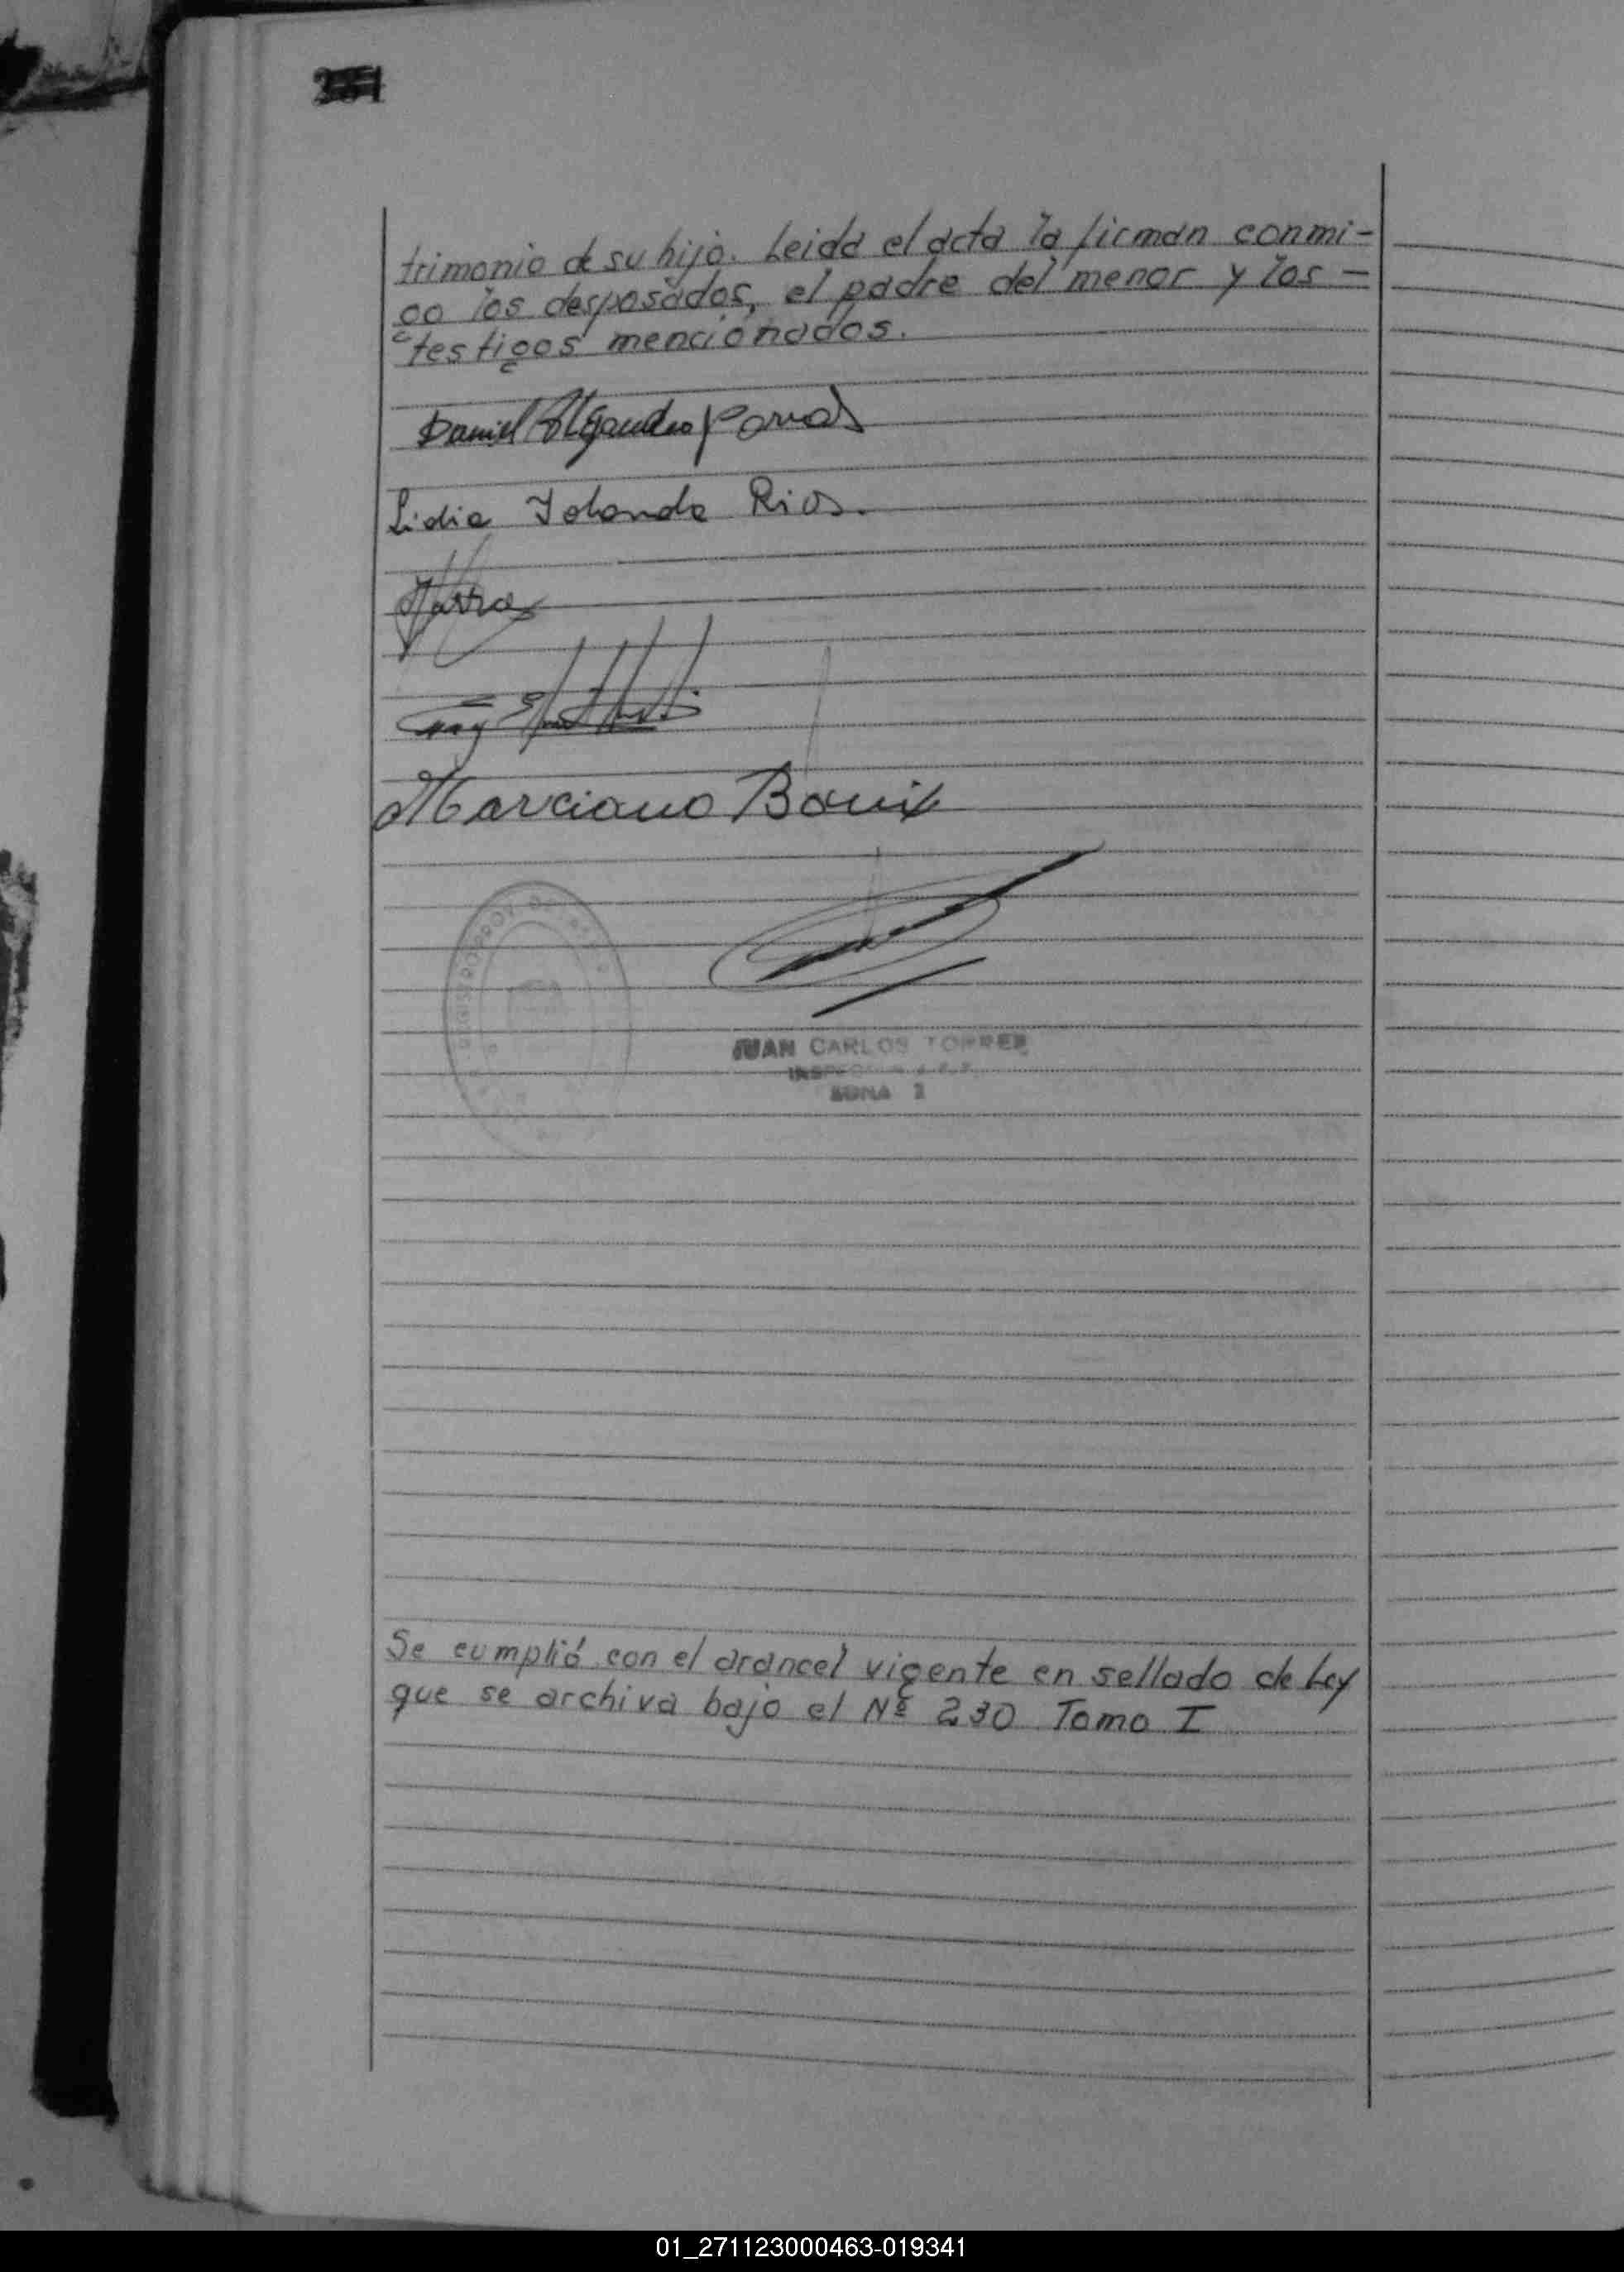 trimonio de su hijo. Leida el acta la firman conmi-
go los desposados, el padre del menor y los -
testigos mencionados.
Daniel Alejandro
Lidia Iolanda Rios.
Marciano
JUAN CARLOS TORRES
ZONA 2
Se cumplió con el arancel vigente en sellado de Ley
que se archiva bajo el Nº 230 Tomo I
01_271123000463-019341